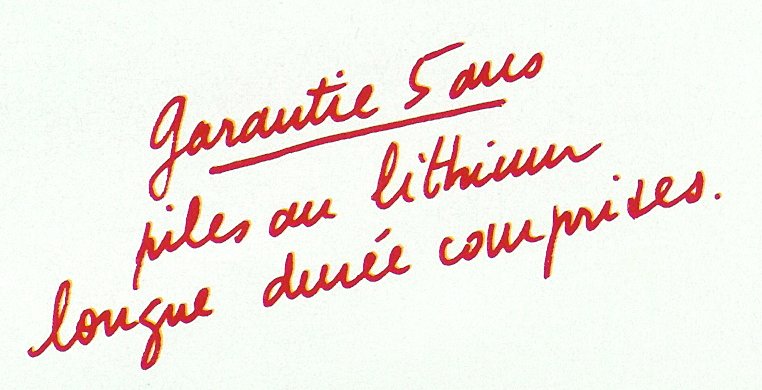 Garantie 5 ans
piles au lithium
longue durée comprises.